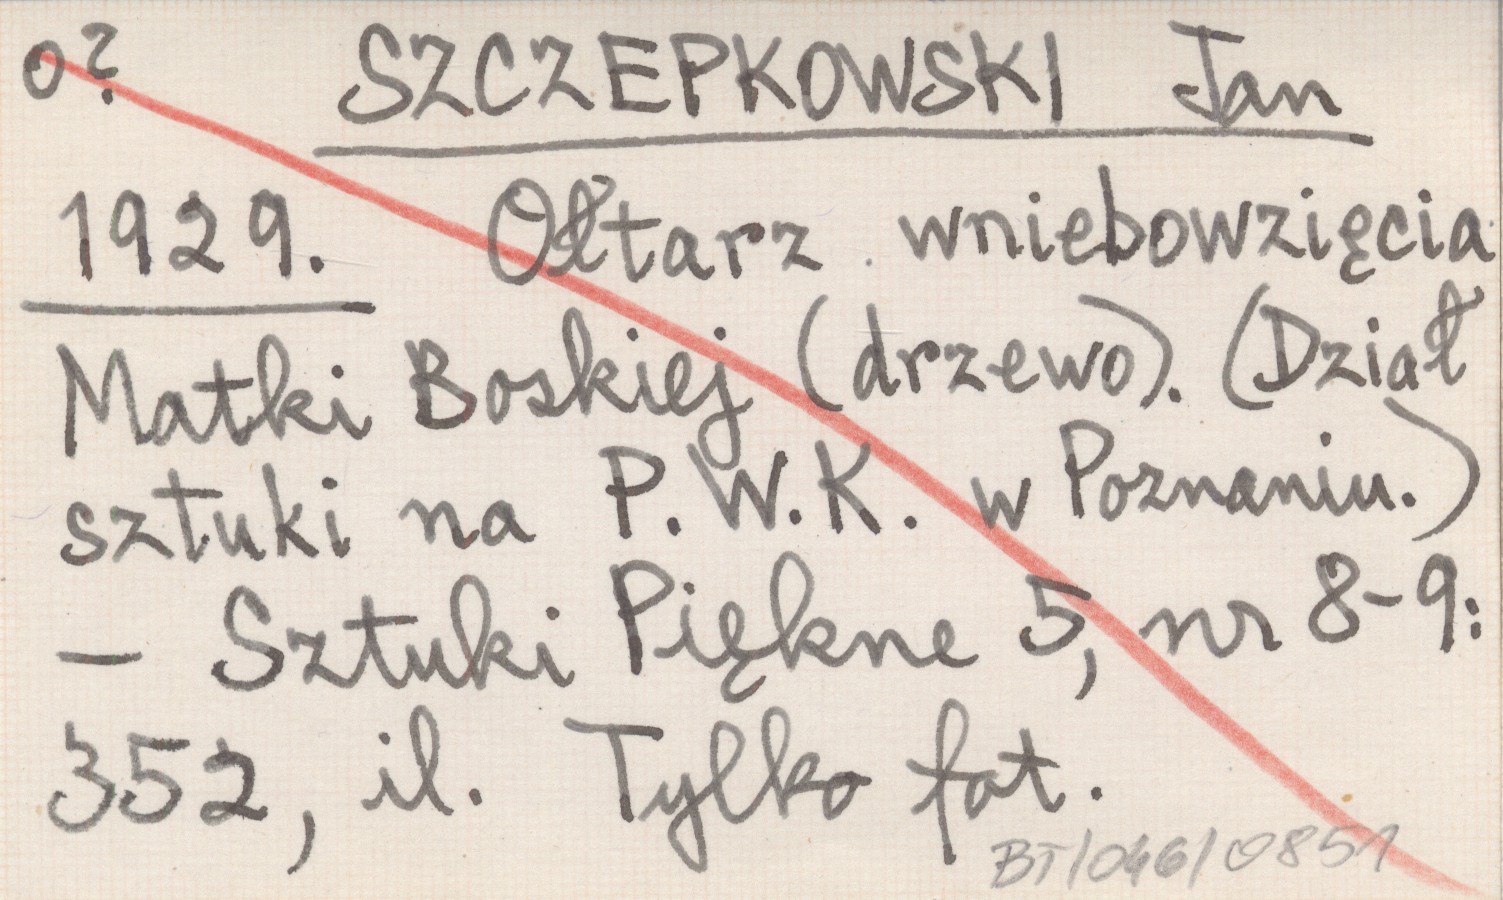 o? SZCZEPKOWSKI Jan
1929. Ołtarz wniebowzięcia
Matki Boskiej (drzewo). (Dział
sztuki na P.W.K. w Poznaniu.)
— Sztuki Piękne 5, nr 8-9:
352, il. Tylko fot.
BT/046/0851